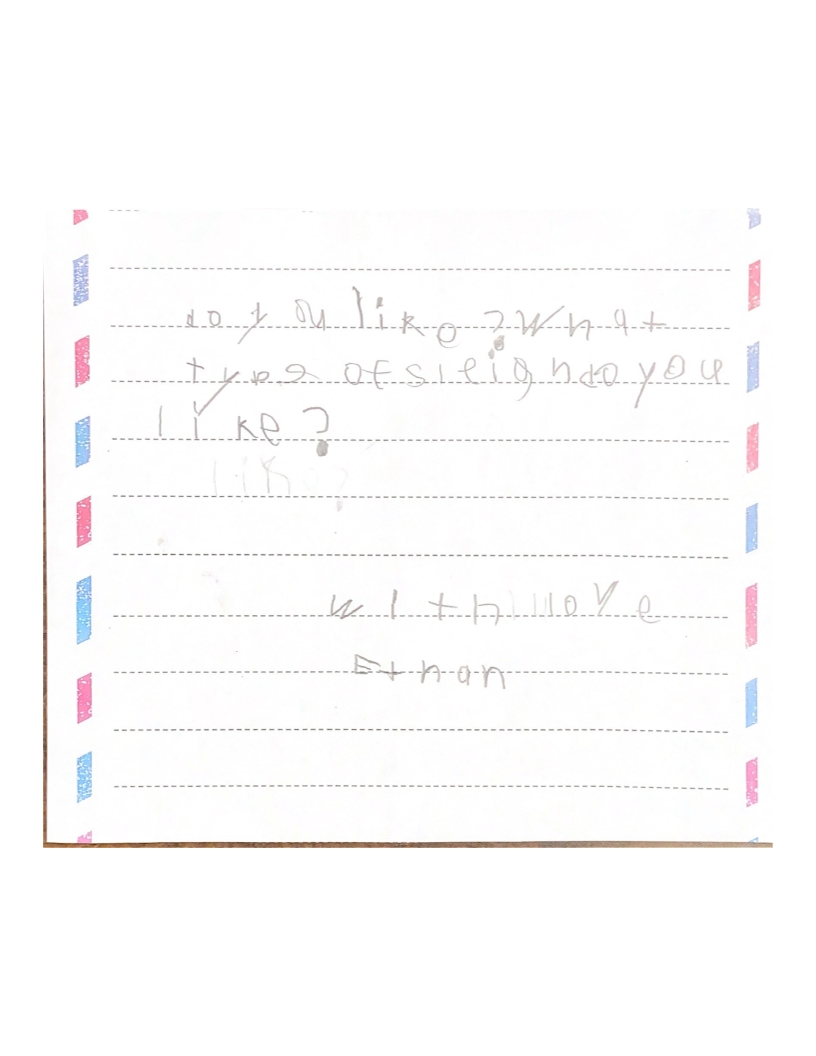 do you like? What
type of sleigh do you
like?
like?
with love
Ethan